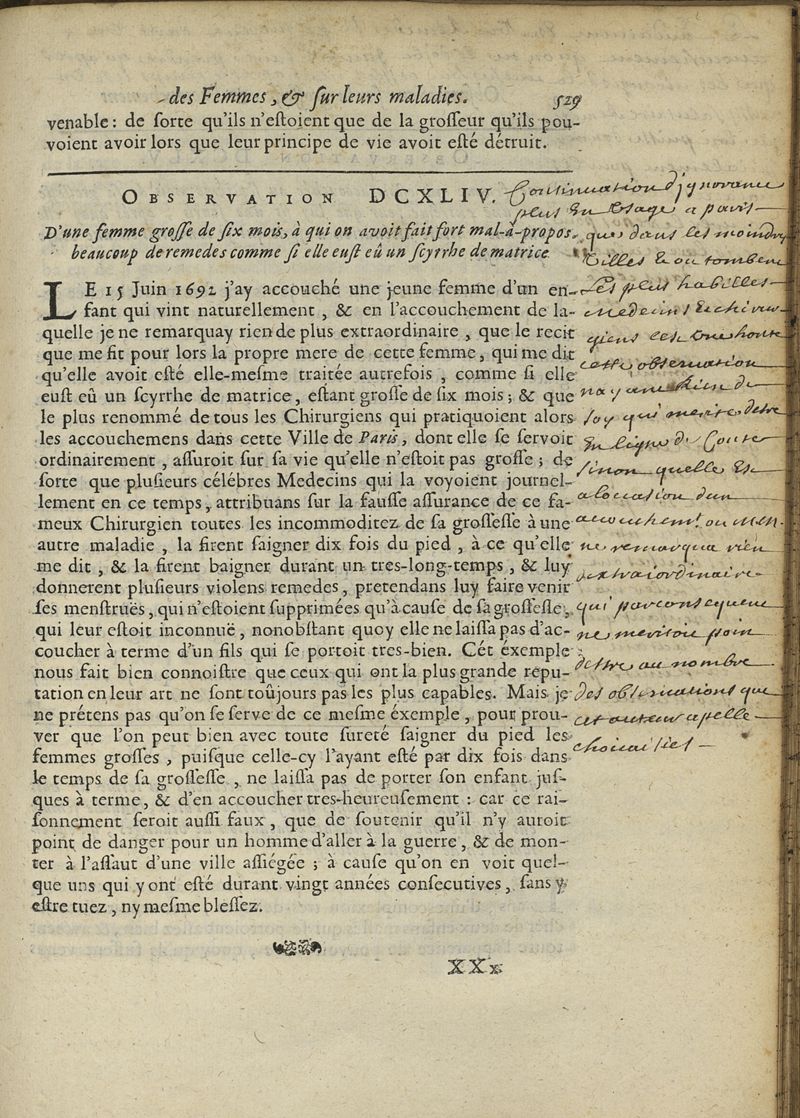 des Femmes, & ſur leurs maladies. 529
venable: de ſorte qu'ils n'eſtoient que de la groſſeur qu'ils pou-
voient avoir lors que leur principe de vie avoit eſté détruit.
OBSERVATION DCXLIV.
D'une femme groſſe de ſix mois, à qui on avoit fait fort mal-à-propos
beaucoup de remedes comme ſi elle euſt eû un ſcyrrhe de matrice
LE 15 Juin 1692 j'ay accouché une jeune femme d'un en-
fant qui vint naturellement, & en l'accouchement de la-
quelle je ne remarquay rien de plus extraordinaire, que le recit
que me fit pour lors la propre mere de cette femme, qui me dit
qu'elle avoit eſté elle-meſme traitée autrefois, comme ſi elle
euſt eû un ſcyrrhe de matrice, eſtant groſſe de ſix mois; & que
le plus renommé de tous les Chirurgiens qui pratiquoient alors
les accouchemens dans cette Ville de Paris, dont elle ſe ſervoit
ordinairement, aſſuroit ſur ſa vie qu'elle n'eſtoit pas groſſe; de
ſorte que pluſieurs célébres Medecins qui la voyoient journel-
lement en ce temps, attribuans ſur la fauſſe aſſurance de ce fa-
meux Chirurgien toutes les incommoditez de ſa groſſeſſe à une
autre maladie, la firent ſaigner dix fois du pied, à ce qu'elle
me dit, & la firent baigner durant un tres-long-temps, & luy
donnerent pluſieurs violens remedes, pretendans luy faire venir
ſes menſtruës, qui n'eſtoient ſupprimées qu'à cauſe de ſa groſſeſſe,
qui leur eſtoit inconnuë, nonobſtant quoy elle ne laiſſa pas d'ac-
coucher à terme d'un fils qui ſe portoit tres-bien. Cét éxemple
nous fait bien connoiſtre que ceux qui ont la plus grande repu-
tation en leur art ne ſont toûjours pas les plus capables. Mais je
ne prétens pas qu'on ſe ſerve de ce meſme éxemple, pour prou-
ver que l'on peut bien avec toute ſureté ſaigner du pied les
femmes groſſes, puiſque celle-cy l'ayant eſté par dix fois dans
le temps de ſa groſſeſſe, ne laiſſa pas de porter ſon enfant juſ-
ques à terme, & d'en accoucher tres-heureuſement: car ce rai-
ſonnement ſeroit auſſi faux, que de ſoutenir qu'il n'y auroit
point de danger pour un homme d'aller à la guerre, & de mon-
ter à l'aſſaut d'une ville aſſiégée; à cauſe qu'on en voit quel-
que uns qui y ont eſté durant vingt années conſecutives, ſans y
eſtre tuez, ny meſme bleſſez.
XXx
Continuation d'ignorance
plus en usage a paris
que dans les moindre
villes & ou tombent
les plus habilles
medecins & chirur
giens
cette observation
na y ant rien de
soy qui merite detre
en ligne de Conte
sinon quelle &
a locasion dun
accouchemt ou mon
ne remarqua rien
dextraiordinaire
qui par consequent
ne meritoit poin
destre au nombre
des observations que
cet auteur apelle
choisies